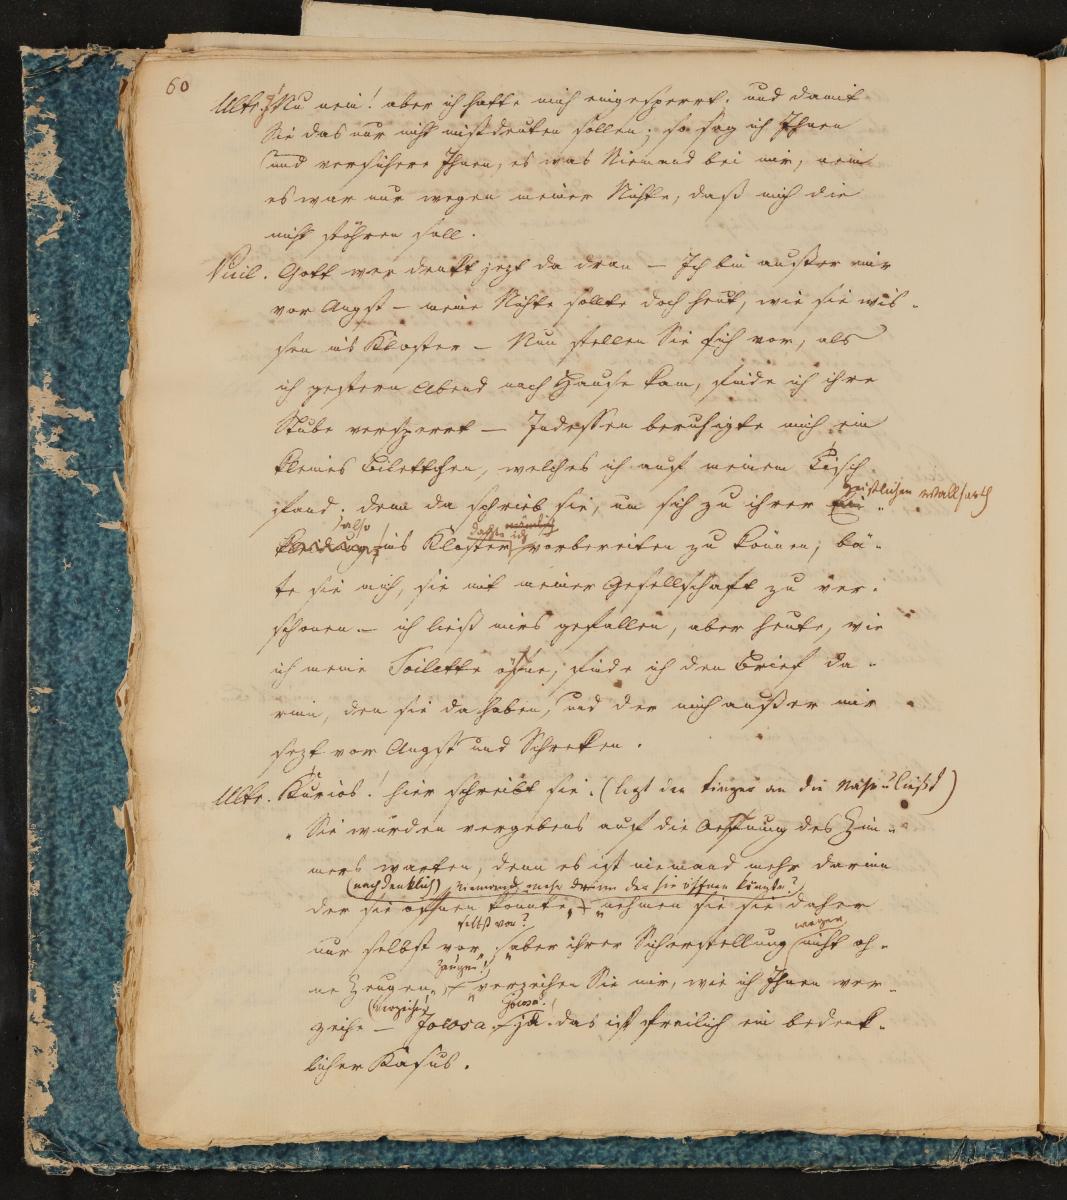 60
Alte. Nu nein! aber ich hatte mich eingesperrt. und damit
Sie das nur nicht mißdeuten sollen; so sag ich Ihnen
und versichere Ihnen, es war Niemand bei mir, nein
es war nur wegen meiner Nichte, daß mich die
nicht stöhren soll.
Gott wer denkt jezt da dran — Ich bin außer mir
vor Angst — meine Nichte sollte doch heut, wie sie wis-
sen ins Kloster — Nun stellen Sie sich vor, als
ich gestern Abend nach Hause kam, finde ich ihre
Stube versperrt — Indessen beruhigte mich ein
kleines Bilettchen, welches ich auf meinem Tisch
geistlichen Wallfarth
fand. denn da schrieb sie, um sich zu ihrer
also dachte ich
ins Kloster vorbereiten zu können; bä-
te sie mich, sie mit meiner Gesellschaft zu ver-
schonen — ich ließ mirs gefallen, aber heute, wie
ich meine Toilette öfne, finde ich den Brief da-
rinn, den sie da haben, und der mich außer mir
sezt vor Angst und Schreken.
Alte. Kurios! hier schreibt sie. (legt den Finger an die Nase u ließt)
„Sie würden vergebens auf die Oeffnung des Zim-
mers warten, denn es ist niemand mehr darinn
(nachdenklich) niemand mehr drinn der sie öffnen könnte?
der sie öffnen könnte„ — „nehmen sie sie daher
selbst vor?
wegen
nur selbst vor, „aber ihrer Sicherstellung nicht oh-
Zeugen!
ne Zeugen„ — „verzeihen Sie mir, wie ich Ihnen ver-
(Verzeihe!) Jocosa!
zeihe — Jocosa — ja. das ist freilich ein bedenk-
licher Kasus.